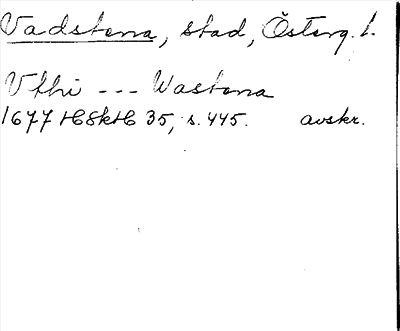 Vadstena, stad, Österg. l.
Vthi --- Wastena
1677 HSkH 35, s. 445. avskr.